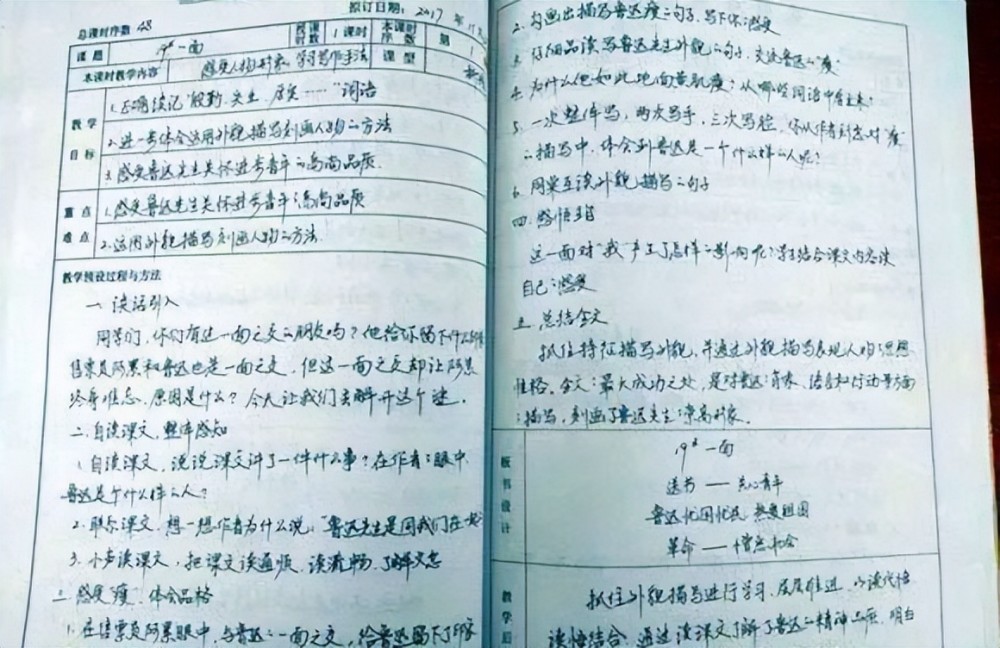 总课时序数 48
拟订日期: 2017 年 11月
课题 19* 一面 授课时数 1课时 本课时序数 第 1
本课时教学内容 感受人物形象，学习写作手法 课型
教学目标
1. 正确读记"殷勤、失业、……"词语
2. 进一步体会运用外貌描写刻画人物的方法
3. 感受鲁迅先生关怀进步青年的高尚品质.
重点难点
1. 感受鲁迅先生关怀进步青年的高尚品质
2. 运用外貌描写刻画人物的方法.
教学预设过程与方法
一. 谈话引入
同学们，你们有过一面之交的朋友吗？他给你留下什么印
售票员阿累和鲁迅也是一面之交，但这一面之交却让阿累
终身难忘，原因是什么？今天让我们去解开这个谜.
二. 自读课文，整体感知
1. 自读课文，说说课文讲了一件什么事？在作者的眼中，
鲁迅是个什么样的人？
2. 联系课文，想一想作者为什么说，"鲁迅先生是同我们在一起
3. 小声读课文，把课文读通顺，读流畅，了解文意
三. 感受"瘦"，体会品格
1. 在售票员阿累眼中，与鲁迅的一面之交，给鲁迅留下了印象
2. 勾画出描写鲁迅瘦的句子，写下你的感受
3. 仔细品读写鲁迅先生外貌的句子，交流鲁迅的"瘦"
4. 为什么他如此地面黄肌瘦？从哪些词语中看出来？
5. 一次整体写，两次写手，三次写脸，你从作者刻意对"瘦"
的描写中，体会到鲁迅是一个什么样的人呢？
6. 同桌互读外貌描写的句子
四. 感悟
这一面对"我"产生了怎样的影响呢？学生结合课文内容谈
自己的感受
五. 总结全文
抓住特征描写外貌，并通过外貌描写表现人物的思想
性格。全文的最大成功之处，是对鲁迅的肖像、语言和行动等方面
的描写，刻画了鲁迅先生的崇高形象.
板书设计
19* 一面
送书 —— 关心青年
鲁迅忧国忧民 热爱祖国
革命 —— 憎恶社会
教学后
抓住外貌描写进行学习，层层推进，以读代悟
读悟结合，通过读课文了解了鲁迅的精神品质，明白